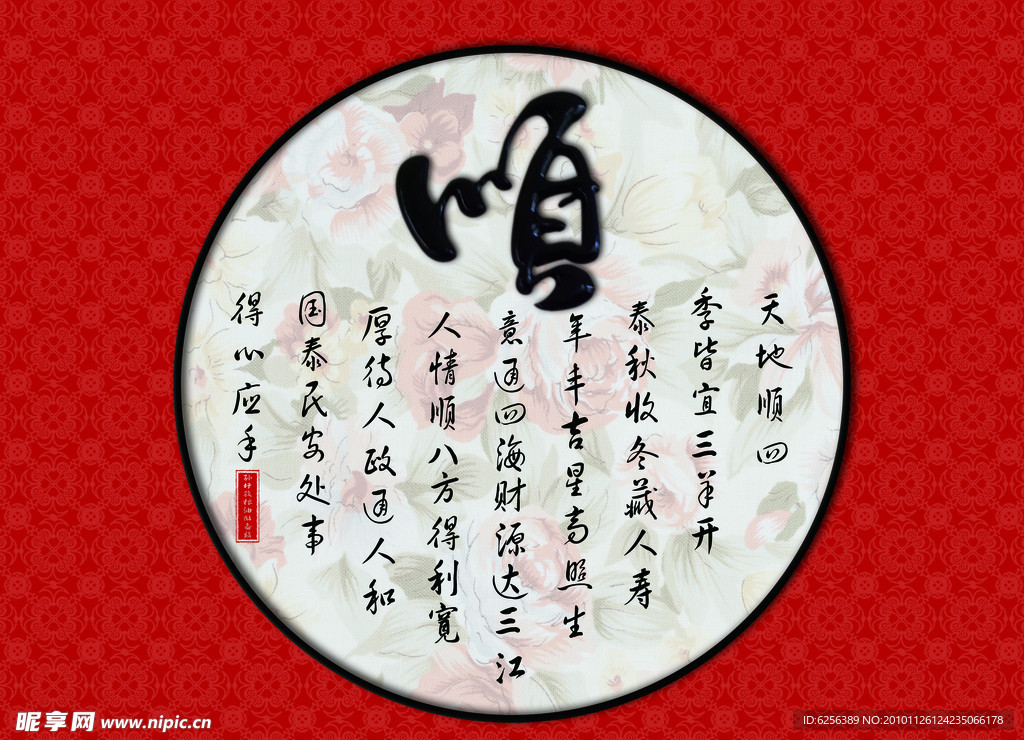 順
天地顺四
季皆宜三羊开
泰秋收冬藏人寿
年丰吉星高照生
意通四海财源达三江
人情顺八方得利寬
厚待人政通人和
国泰民安处事
得心应手
昵享网 www.nipic.cn
ID:6256389 NO:20101126124235066178